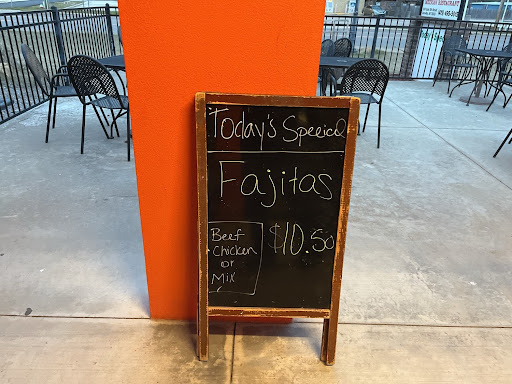 Today's Speeicel
Fajitas
Beef
Chicken
or
Mix
$10.50